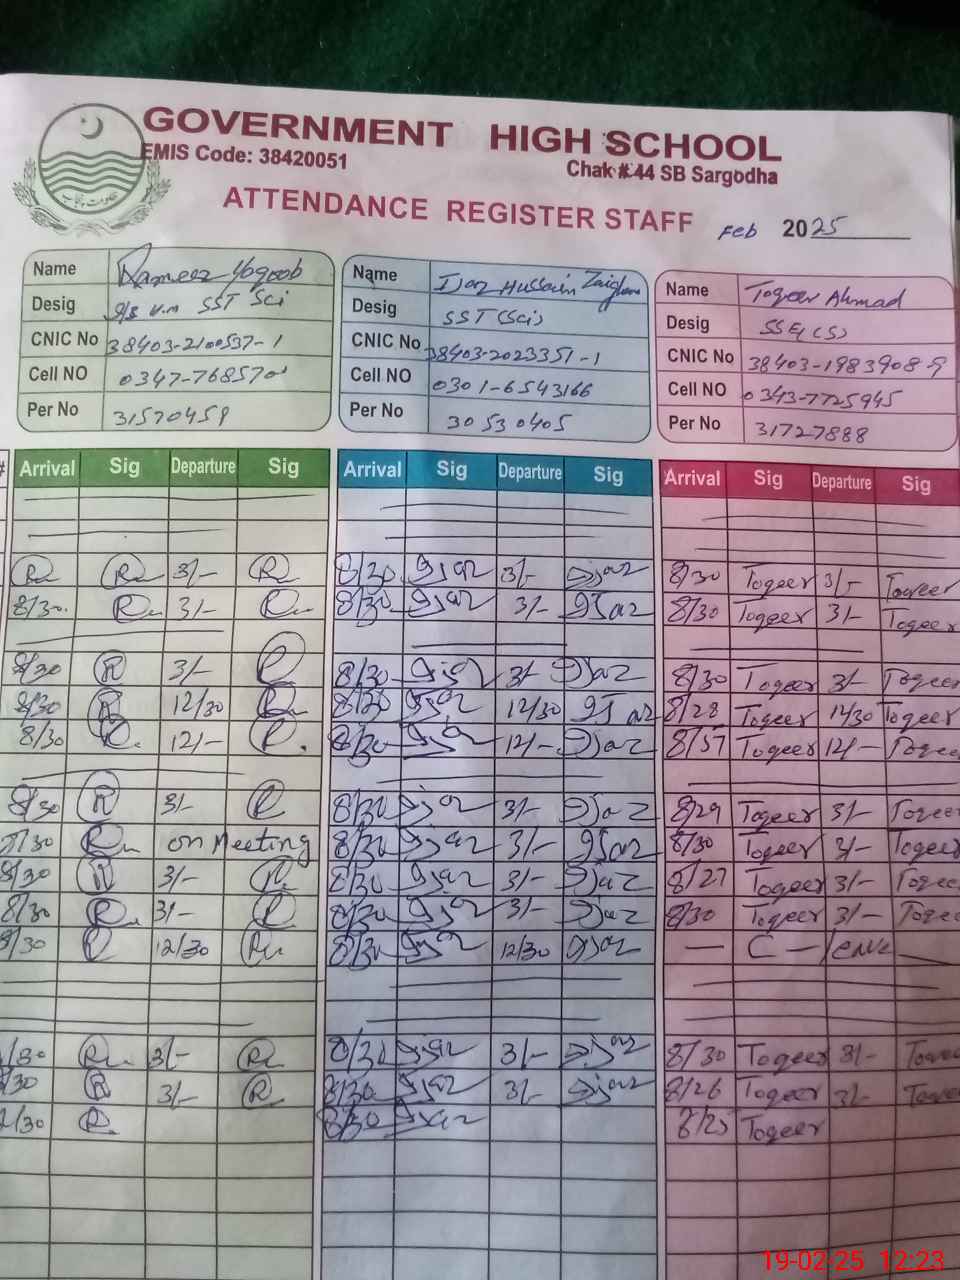 GOVERNMENT HIGH SCHOOL
EMIS Code: 38420051
Chak # 44 SB Sargodha
ATTENDANCE REGISTER STAFF Feb 2025
Name Rameez Yaqoob
Desig SST Sci
CNIC No 38403-2100537-1
Cell NO
Per No 31570459
Name Ijaz Hussain
Desig SST (Sci)
CNIC No 38403-2023351-1
Cell NO 0301-6543166
Per No 30530405
Name Toqeer Ahmad
Desig
CNIC No 38403-1983908-9
Cell NO 0343-7725945
Per No 31727888
# Arrival Sig Departure Sig Arrival Sig Departure Sig Arrival Sig Departure Sig
3/- 8/30 Ijaz 3/- Ijaz 8/30 Toqeer 3/- Toqeer
8/30 3/- 8/30 Ijaz 3/- Ijaz 8/30 Toqeer 3/- Toqeer
8/30 R 3/- R 8/30 Ijaz 3/- Ijaz 8/30 Toqeer 3/- Toqeer
8/30 R 12/30 8/30 Ijaz 12/30 Ijaz 8/28 Toqeer 12/30 Toqeer
8/30 R. 12/- R. 8/30 Ijaz 12/- Ijaz Toqeer 12/- Toqeer
8/30 R 3/- R 8/30 Ijaz 3/- Ijaz 8/29 Toqeer 3/- Toqeer
/30 on Meeting 8/30 Ijaz 3/- Ijaz 8/30 Toqeer 3/- Toqeer
8/30 R 3/- 8/30 Ijaz 3/- Ijaz 8/27 Toqeer 3/- Toqeer
8/30 3/- R 8/30 Ijaz 3/- Ijaz 8/30 Toqeer 3/- Toqeer
8/30 R 12/30 8/30 Ijaz 12/30 Ijaz — C — leave —
/30 3/- 8/30 Ijaz 3/- Ijaz 8/30 Toqeer 3/- Toqeer
/30 R 3/- R 8/30 Ijaz 3/- Ijaz 8/26 Toqeer 3/- Toqeer
/30 R 8/30 Ijaz 8/25 Toqeer
19-02-25 12:23